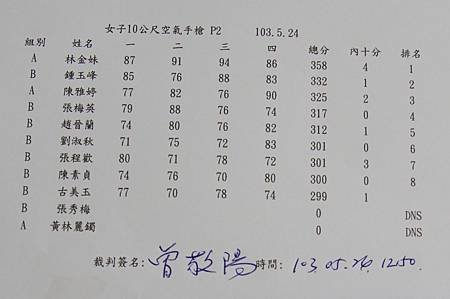 女子10公尺空氣手槍 P2 103.5.24
組別 姓名 一 二 三 四 總分 內十分 排名
A 林金妹 87 91 94 86 358 4 1
B 鍾玉峰 85 76 88 83 332 1 2
A 陳雅婷 77 82 76 90 325 2 3
B 張梅英 79 88 76 74 317 0 4
B 趙晉蘭 74 80 76 82 312 1 5
B 劉淑秋 71 75 72 83 301 0 6
B 張程歡 80 71 78 72 301 3 7
B 陳素貞 74 76 70 80 300 0 8
B 古美玉 77 70 78 74 299 1
B 張秀梅 0 DNS
A 黃林麗鐲 0 DNS
裁判簽名: 曾敬陽 時間: 103.05.24. 1250.